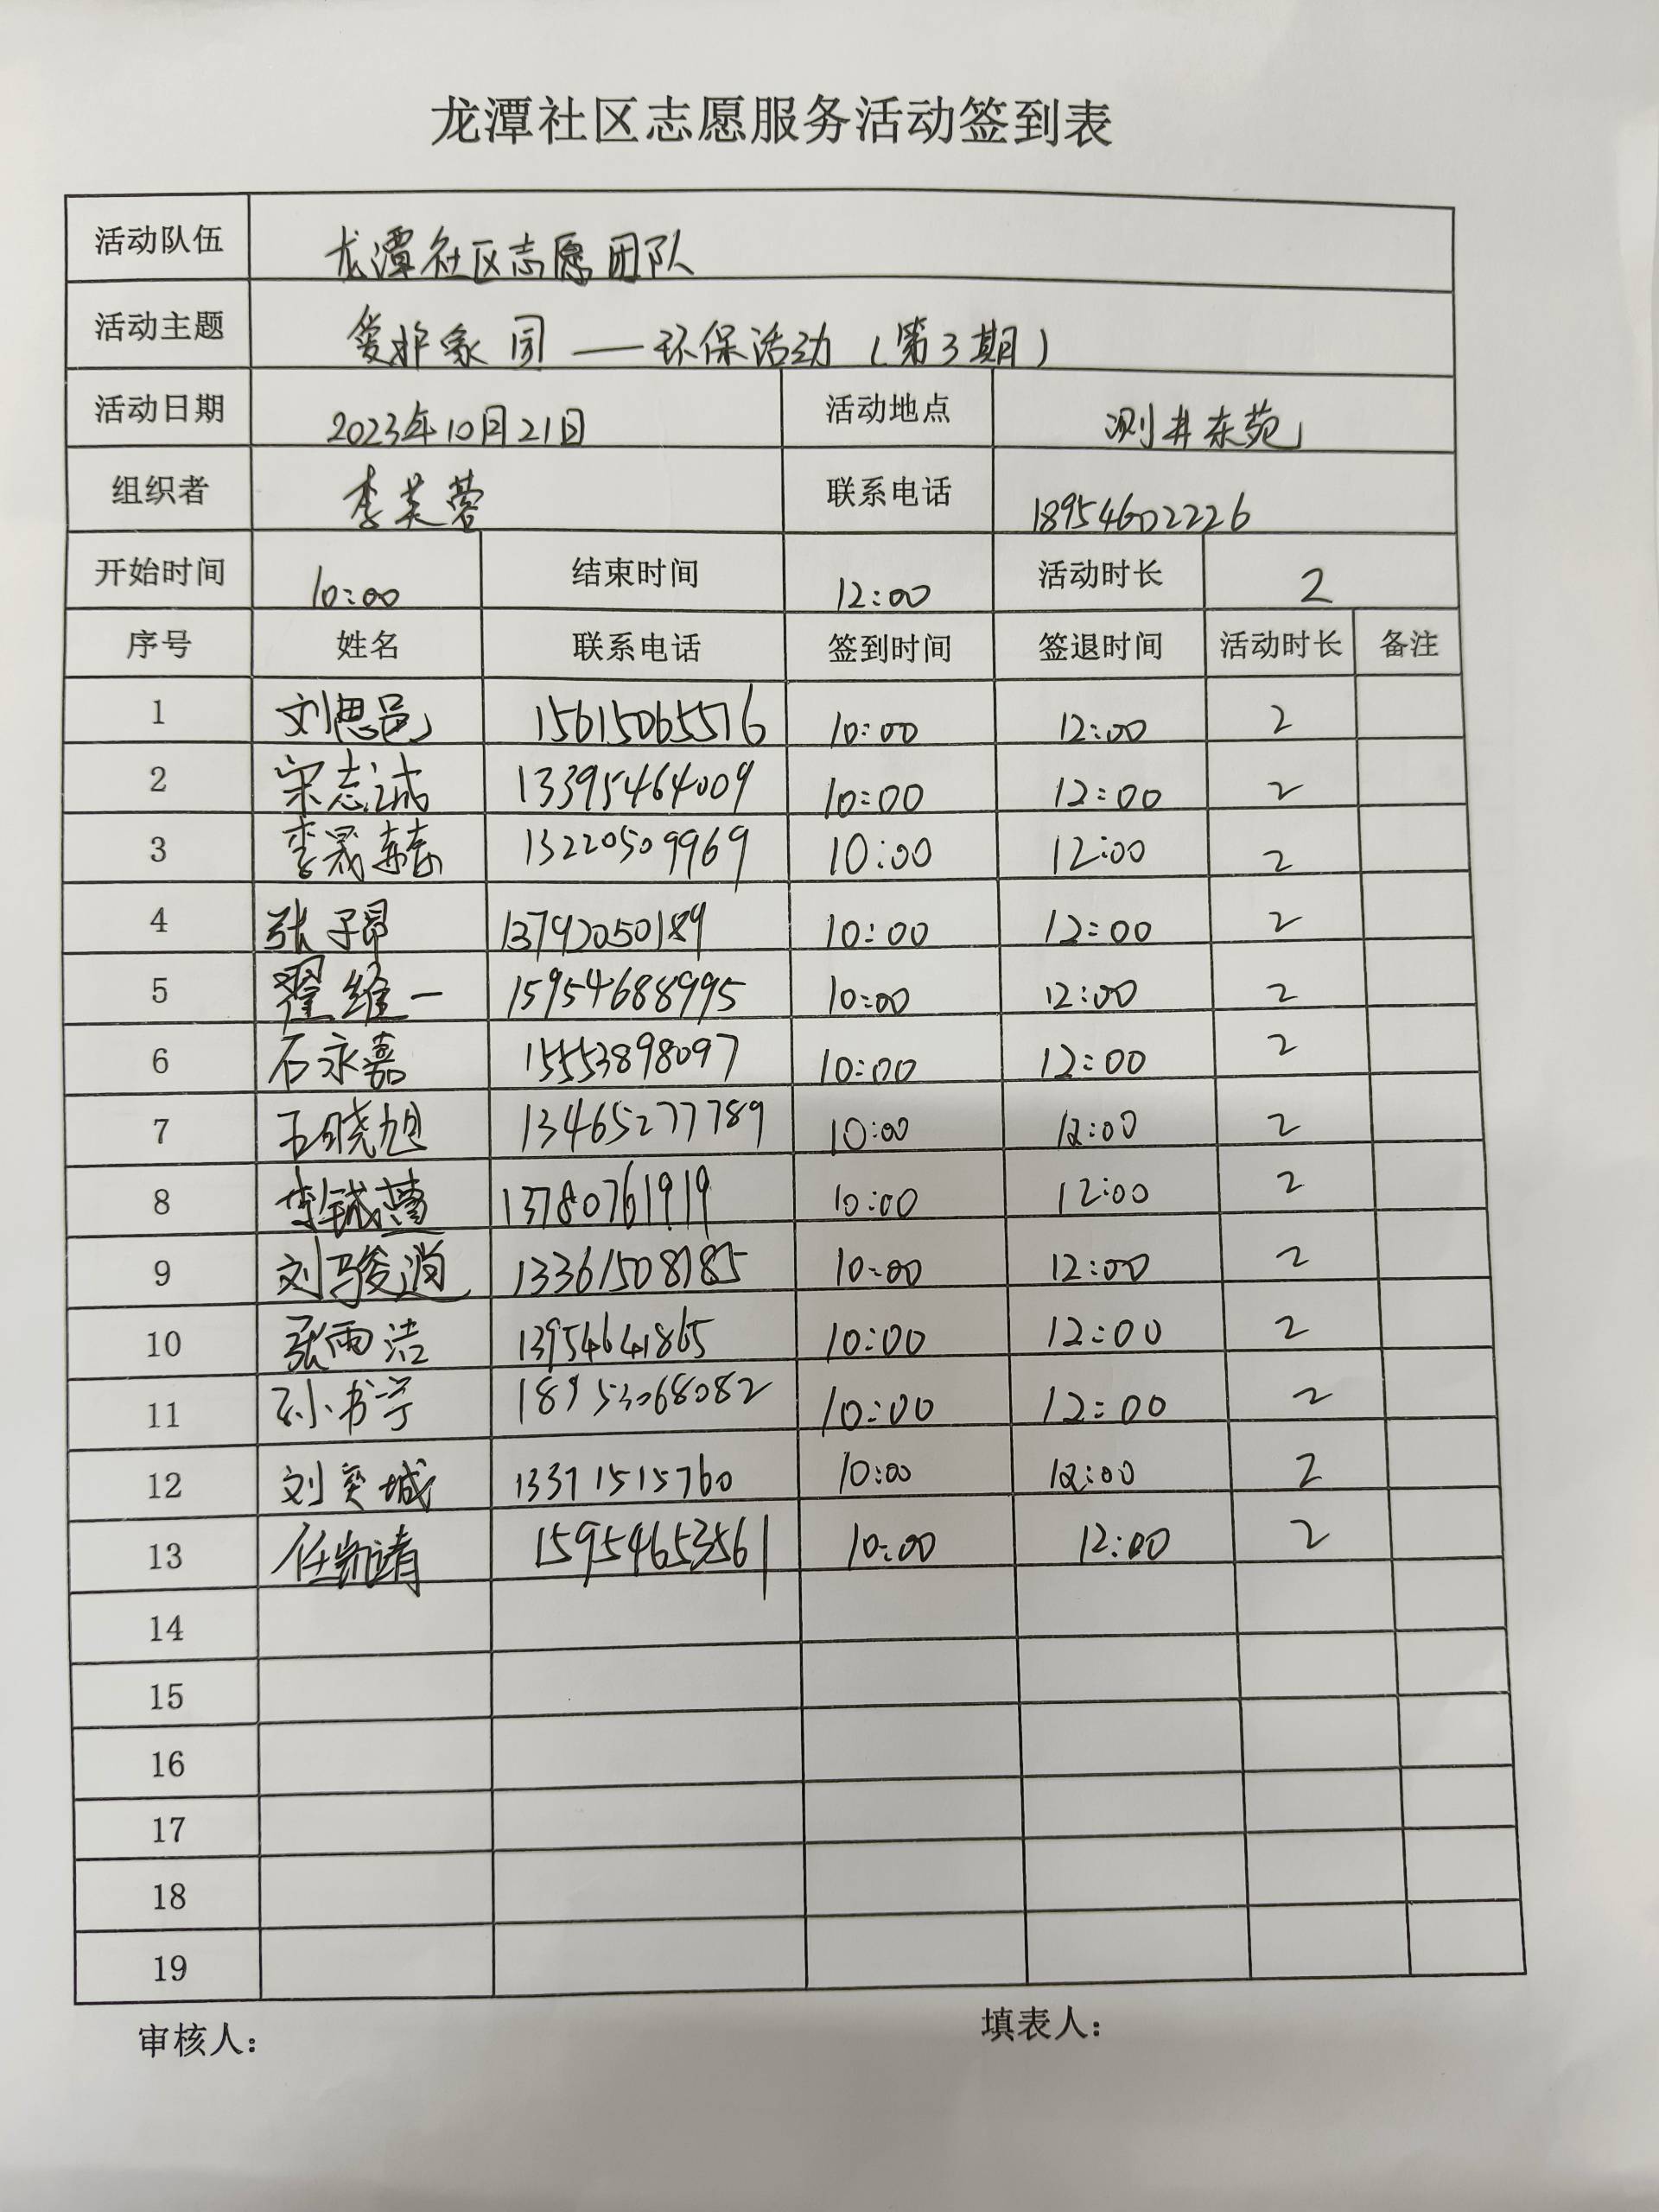 龙潭社区志愿服务活动签到表
活动队伍 龙潭社区志愿团队
活动主题 爱护家园——环保活动（第3期）
活动日期 2023年10月21日 活动地点 测井东苑
组织者 李芙蓉 联系电话 18954602226
开始时间 10:00 结束时间 12:00 活动时长 2
序号 姓名 联系电话 签到时间 签退时间 活动时长 备注
1 刘思邑 15615065576 10:00 12:00 2
2 宋志诚 13395464009 10:00 12:00 2
3 李晟 13220509969 10:00 12:00 2
4 张子昂 13792050189 10:00 12:00 2
5 翟维一 15954688995 10:00 12:00 2
6 石永嘉 15553898097 10:00 12:00 2
7 王晓旭 13465277789 10:00 12:00 2
8 李铖 13780761919 10:00 12:00 2
9 刘骏逍 13361508785 10:00 12:00 2
10 张雨洁 13954641865 10:00 12:00 2
11 孙书宁 18953068082 10:00 12:00 2
12 刘奕城 13371515760 10:00 12:00 2
13 任凯靖 15954653561 10:00 12:00 2
14
15
16
17
18
19
审核人： 填表人：